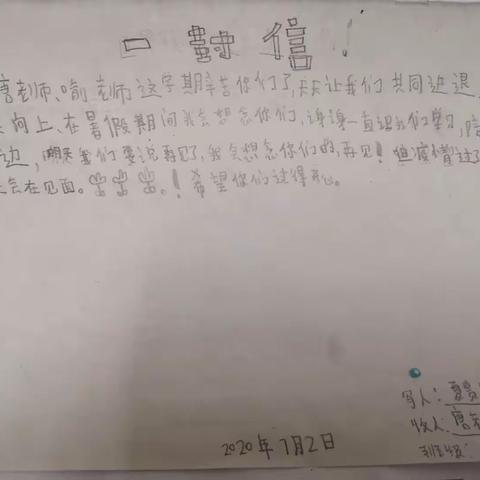 一封信！
唐老师、喻老师这学期辛苦你们了,天天让我们共同进退,
向上、在暑假期间我会想念你们,谢谢一直跟我们学习,陪
边,明天我们要说再见了,我会想念你们的,再见！但疫情过了
会在见面。！希望你们过得开心。
写人:夏
收人:唐老
班级:
2020年7月2日